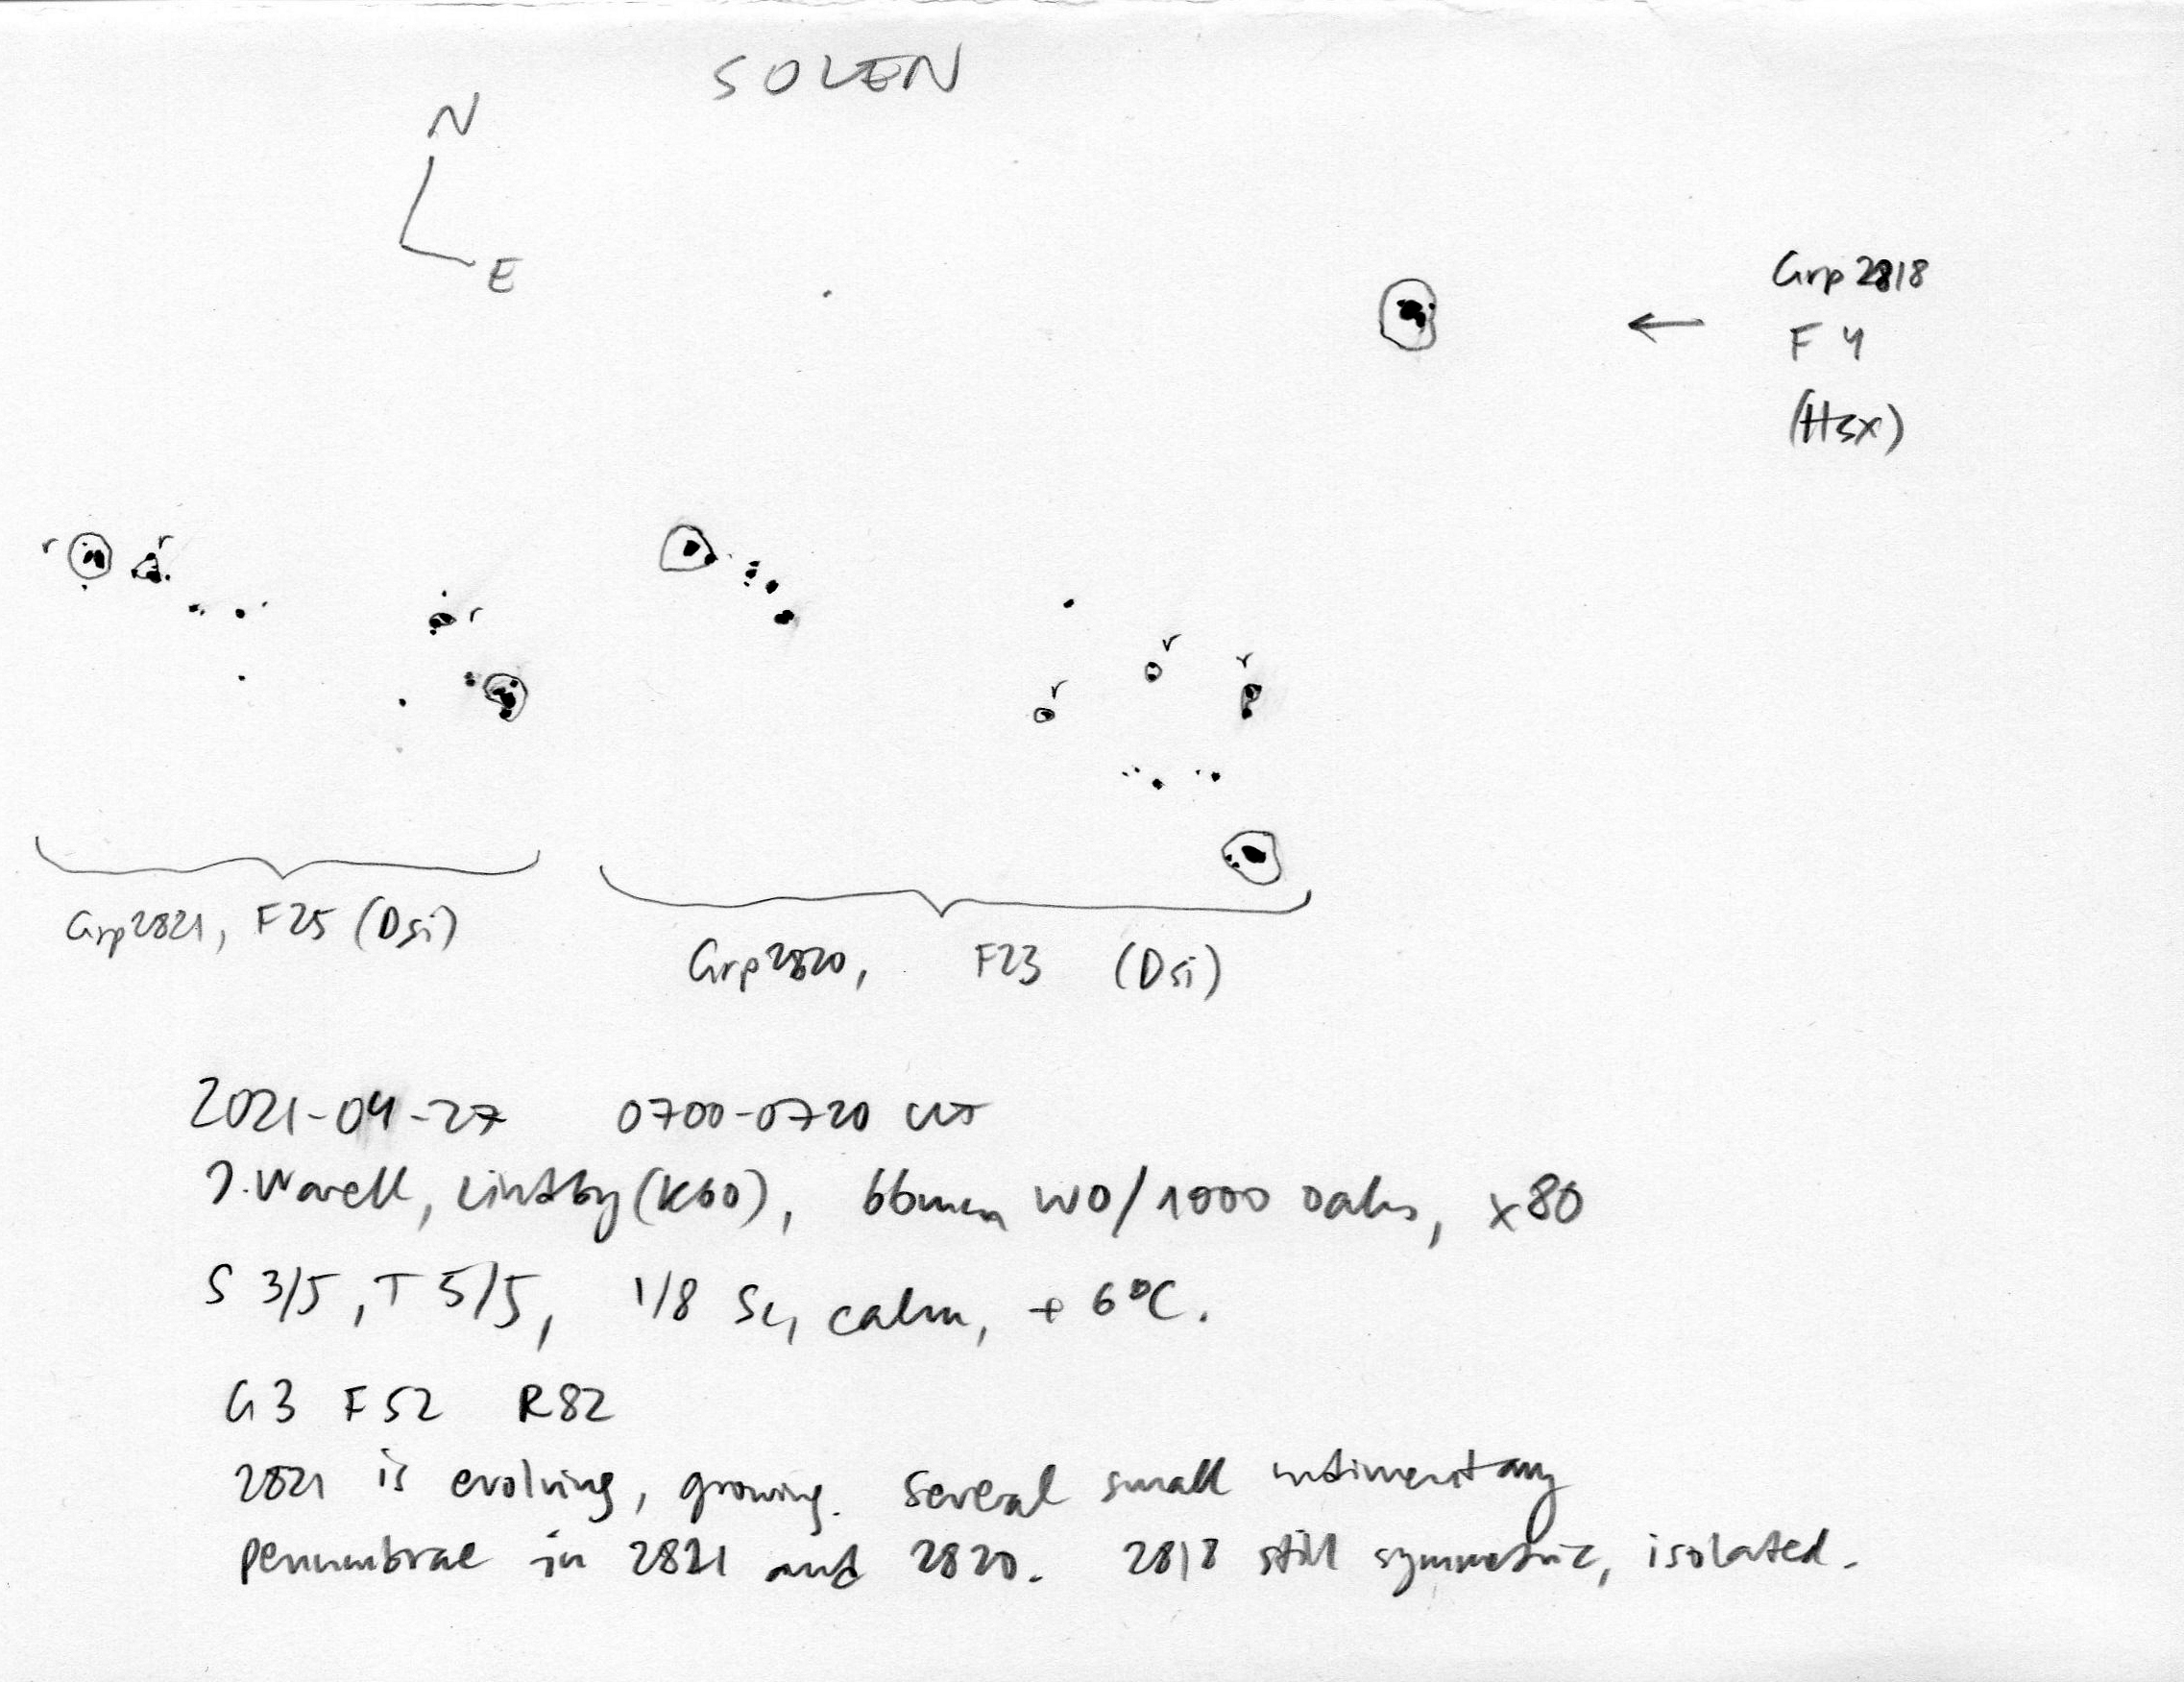 SOLEN
N
E
Grp 2818
F 4
(Hsx)
r
r
r
r
r
r
Grp 2821, F25 (Dsi)
Grp 2820, F23 (Dsi)
2021-04-27 0700-0720 UT
J. Warell, Lindby (K60), 66mm WO/1000 Oaks, x80
S 3/5, T 5/5, 1/8 Sc, calm, +6°C.
G3 F52 R82
2821 is evolving, growing. Several small rudimentary
penumbrae in 2821 and 2820. 2818 still symmetric, isolated.